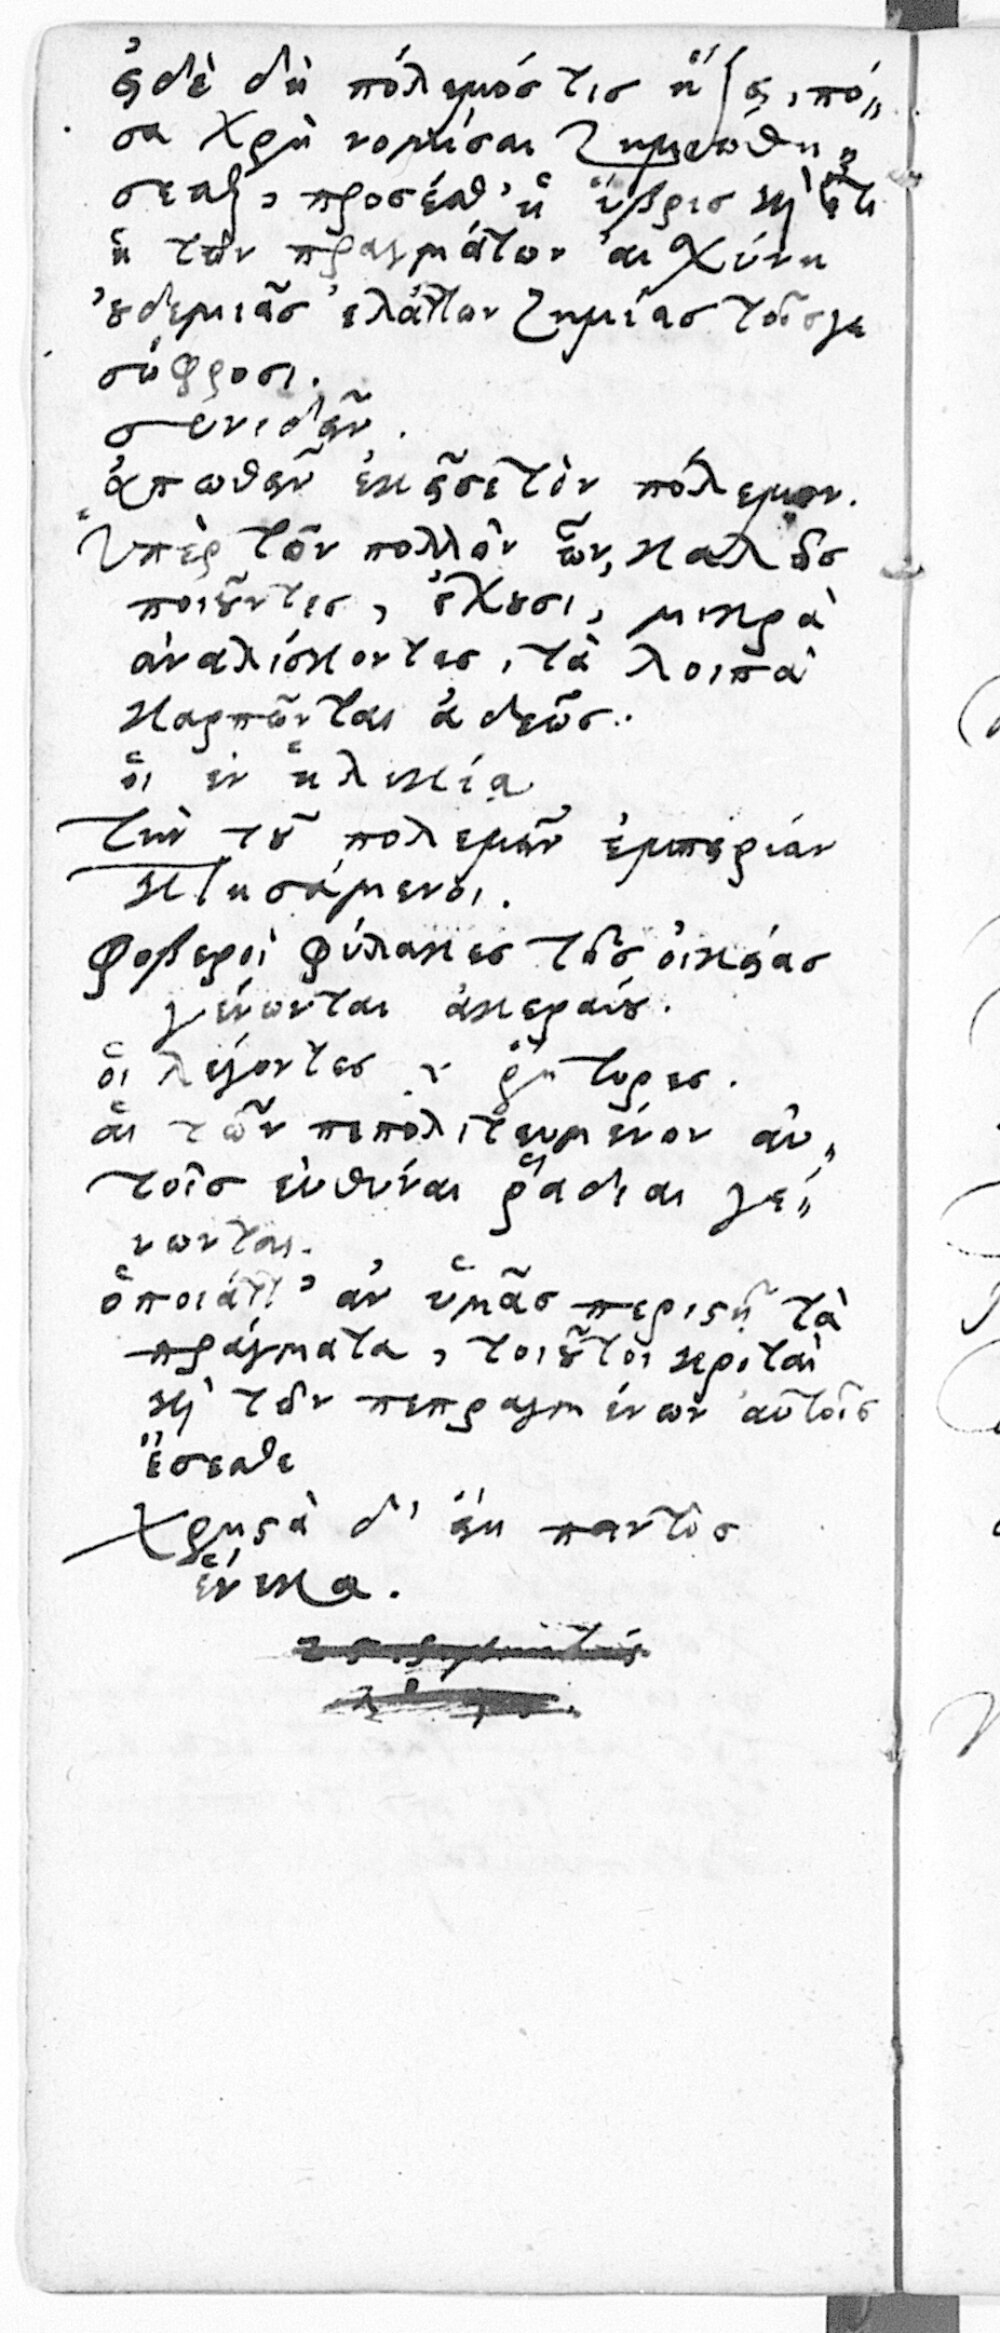 εἰ δὲ δὴ πόλεμός τις ἥξει, πό„
σα χρὴ νομίσαι ζημιωθή„
σεσθαι, προσέσθ' ἡ ὕβρις καὶ ἔτι
ἡ τῶν πραγμάτων αἰσχύνη
οὐδεμιᾶς ἐλάττων ζημίας τοῖς γε
σώφροσι.
συνιδεῖν.
ἀπωθεῖν ἐκεῖσε τὸν πόλεμον.
ὑπὲρ τῶν πολλῶν ὧν, καλῶς
ποιοῦντες, ἔχουσι, μικρὰ
ἀναλίσκοντες, τὰ λοιπὰ
καρπῶνται ἀδεῶς.
οἱ ἐν ἡλικίᾳ
τὴν τοῦ πολεμεῖν ἐμπειρίαν
κτησάμενοι.
φοβεροὶ φύλακες τῆς οἰκείας
γένωνται ἀκεραίου.
οἱ λέγοντες ῥήτορες.
αἱ τῶν πεπολιτευμένων αὐ„
τοῖς εὐθύναι ῥᾴδιαι γέ„
νωνται.
ὁποῖάττ' ἂν ὑμᾶς περιστῇ τὰ
πράγματα, τοιοῦτοι κριταὶ
καὶ τῶν πεπραγμένων αὐτοῖς
ἔσεσθε
χρηστὰ δ' εἴη παντὸς
εἵνεκα.